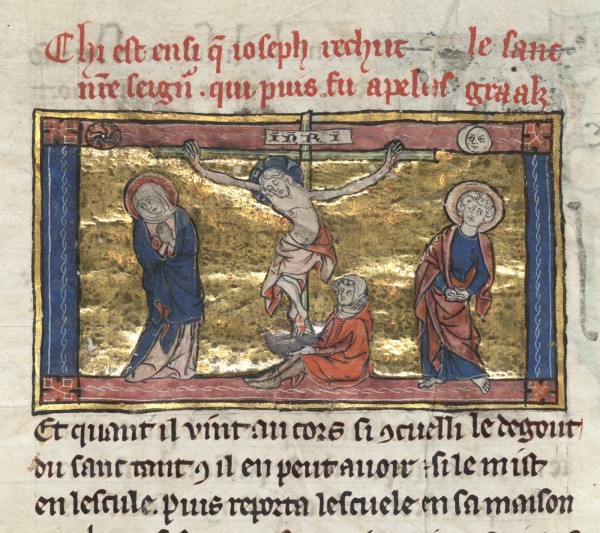 Chi est ensi q̃ ioseph rechut le sanc
nr̃e seign̄. qui puis fu apeles graalz
inri
Et quant il vint au cors si ꝯcuelli le degout
du sanc tant ꝯ il en peut auoir · si le mist
en lescule. Puis reporta lescuele en sa maison